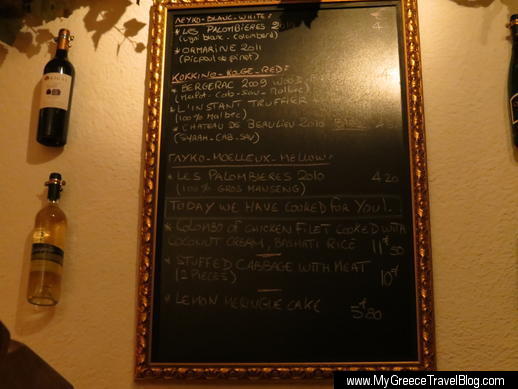 ΛΕΥΚΟ-BLANC-WHITE:
* LES PALOMBIÈRES 2011 4
(ugni blanc - Colombard)
* ORMARINE 2011
(Picpoul de pinet)
KOKKINO-ROUGE-RED:
* BERGERAC 2009 WOOD
(Merlot-Cab-Sau-Malbec)
* L'INSTANT TRUFFIER
(100% Malbec)
* CHATEAU DE BEAULIEU 2010
(SYRAH-CAB-SAU)
ΓΛΥΚΟ-MOELLEUX-MELLOW:
* LES PALOMBIERES 2010 4 20
(100% GROS MANSENG)
TODAY WE HAVE COOKED FOR YOU!
* COLOMBO OF CHICKEN FILET COOKED WITH
COCONUT CREAM, BASMATI RICE 11€50
* STUFFED CABBAGE WITH MEAT
(2 PIECES) 10€
* LEMON MERINGUE CAKE 5€80
www.MyGreeceTravelBlog.com